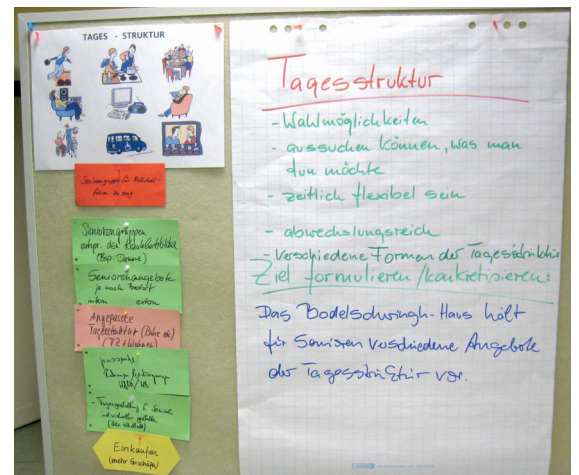 TAGES - STRUKTUR
Seniorengruppe für
zu eng
Seniorengruppen
entspr. der
(Bsp: Demenz)
Seniorenangebote
je nach Bedarf
intern extern
Angepasste
Tagesstruktur (Ruhe etc)
(FZ + Wohnen)
passende
- Tagesgestaltung f. Senioren
individueller gestalten
Einkaufen
(mehr Geschäfte)
Tagesstruktur
- Wahlmöglichkeiten
- aussuchen können, was man
tun möchte
- zeitlich flexibel sein
- abwechslungsreich
- Verschiedene Formen der Tagesstruktur
Ziel formulieren/konkretisieren:
Das Bodelschwingh-Haus hält
für Senioren verschiedene Angebote
der Tagesstruktur vor.